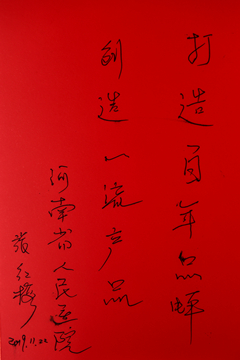 打造百年品牌
创造一流产品
河南省人民医院
张红梅
2019.11.22